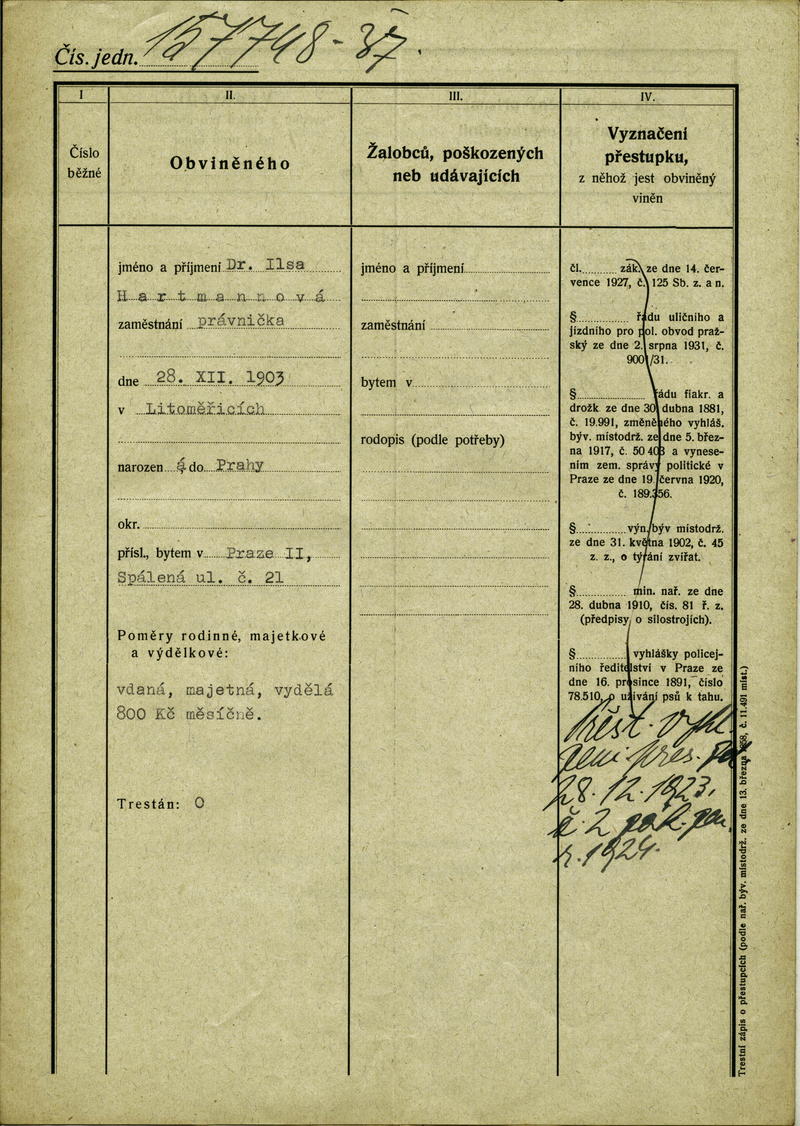 Čís. jedn. 157748-37.
I
II.
III.
IV.
Číslo
běžné
Obviněného
Žalobců, poškozených
neb udávajících
Vyznačení
přestupku,
z něhož jest obviněný
viněn
jméno a příjmení Dr. Ilsa
Hartmannová
zaměstnání právnička
dne 28. XII. 1903
v Litoměřicích
narozen do Prahy
okr.
přísl., bytem v Praze II,
Spálená ul. č. 21
Poměry rodinné, majetkové
a výdělkové:
vdaná, majetná, vydělá
800 Kč měsíčně.
Trestán: 0
jméno a příjmení
zaměstnání
bytem v
rodopis (podle potřeby)
čl. zák. ze dne 14. čer-
vence 1927, č. 125 Sb. z. a n.
§ řádu uličního a
jízdního pro pol. obvod praž-
ský ze dne 2. srpna 1931, č.
900/31.
§ řádu fiakr. a
drožk ze dne 30 dubna 1881,
č. 19.991, změněného vyhláš.
býv. místodrž. ze dne 5. břez-
na 1917, č. 50403 a vynese-
ním zem. správy politické v
Praze ze dne 19. června 1920,
č. 189.356.
§ výn. býv místodrž.
ze dne 31. května 1902, č. 45
z. z., o týrání zvířat.
§ min. nař. ze dne
28. dubna 1910, čís. 81 ř. z.
(předpisy o silostrojích).
§ vyhlášky policej-
ního ředitelství v Praze ze
dne 16. prosince 1891, číslo
78.510, o užívání psů k tahu.
28.12.1923,
č. 2
r. 1924.
Trestní zápis o přestupcích (podle nař. býv. místodrž. ze dne 13. března 1868, č. 11.491 míst.)